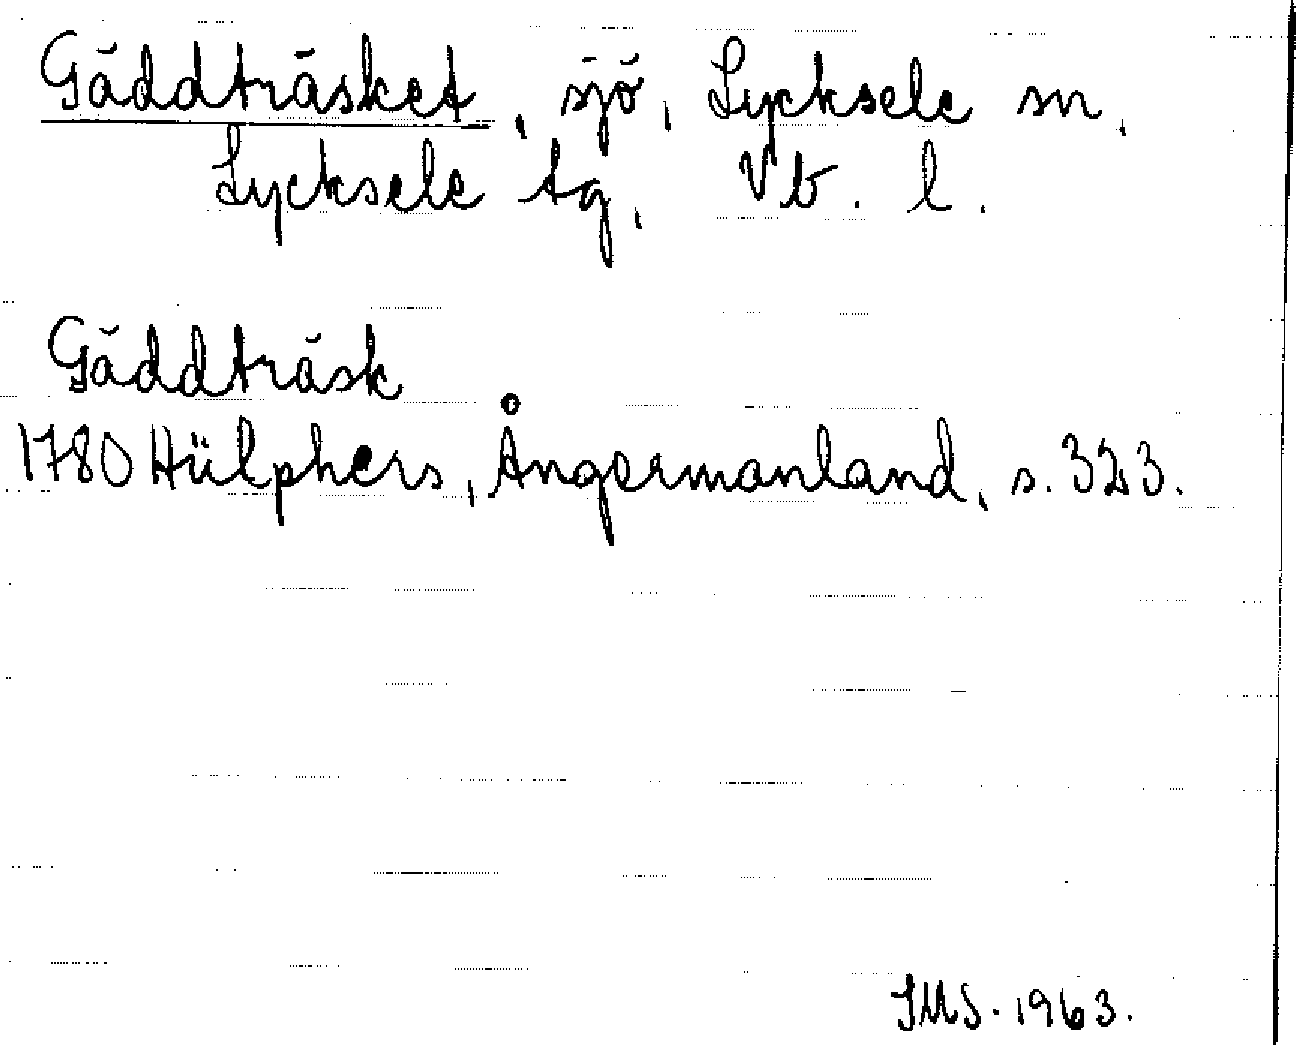 Gäddträsket, sjö, Lycksele sn,
Lycksele tg, Vb. l.
Gäddträsk
1780 Hülphers, Ångermanland, s. 323.
IMS. 1963.